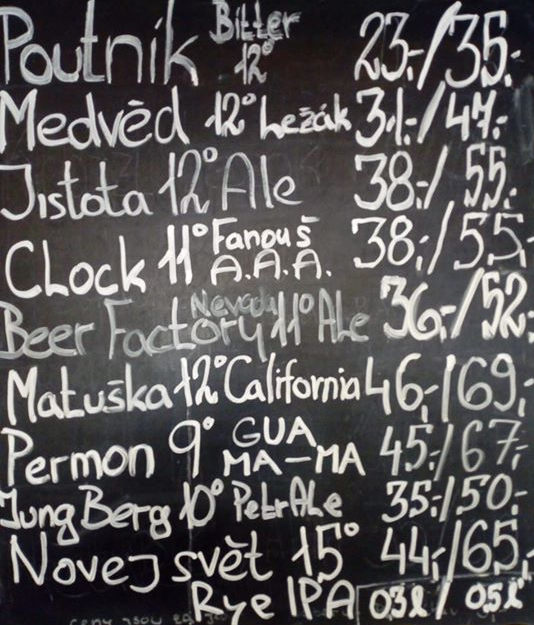 Poutník Bitter 12° 23.-/35.-
Medvěd 12° Ležák 31.-/47.-
Jistota 12° Ale 38.-/55.-
CLock 11° Fanouš A.A.A. 38.-/55.-
Beer Factory Nevada 11° Ale 36.-/52.-
Matuška 12° California 46.-/69.-
Permon 9° GUA MA-MA 45.-/67.-
Jung Berg 10° Petr Ale 35.-/50.-
Novej svět 15° 44.-/65.-
Rye IPA 0,3l / 0,5l
ceny jsou za